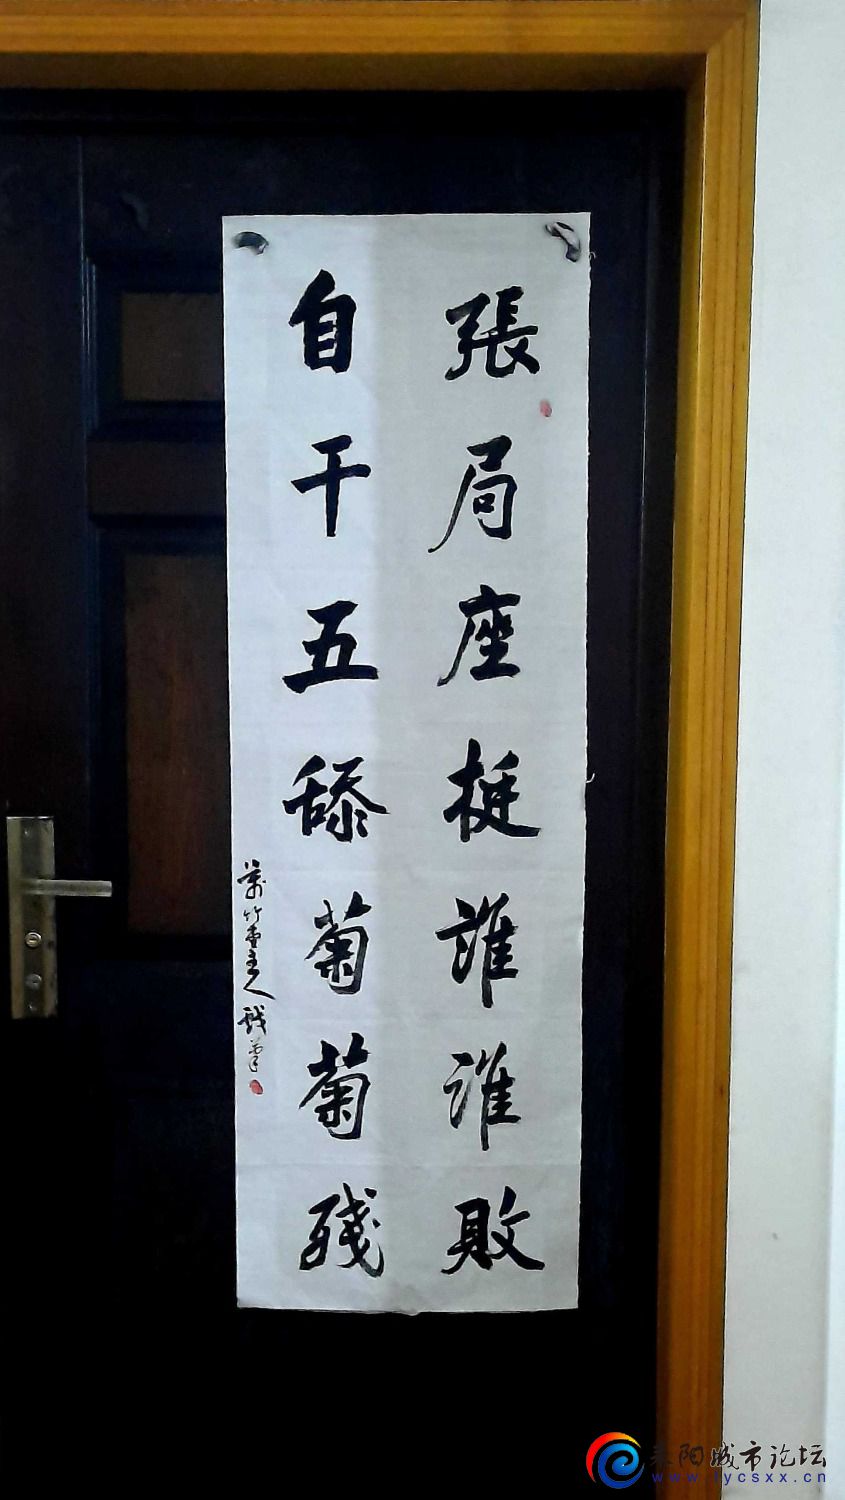 張局座挺誰誰敗
自干五舔菊菊残
萬竹堂主人戲筆
耒阳城市论坛
www.lycsxx.cn